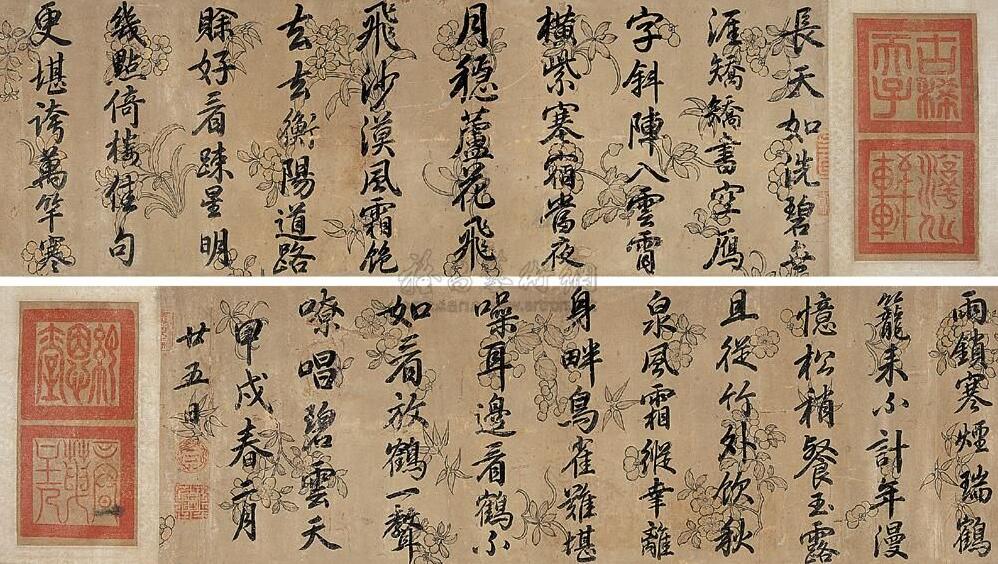 古稀
天子
淳化
軒
長天如洗碧無
涯矯矯書空鴈
字斜陣入雲霄
橫紫塞宿當夜
月穩蘆花飛
飛沙漠風霜飽
去去衡陽道路
賒好看踈星明
幾點倚樓佳句
更堪誇萬竿寒
雨鎖寒煙瑞鶴
籠来不計年漫
憶松梢餐玉露
且從竹外飲秋
泉風霜縱幸離
身畔鳥雀難堪
噪耳邊看鶴不
如看放鶴一聲
嘹唱碧雲天
甲戌春二月
廿五日